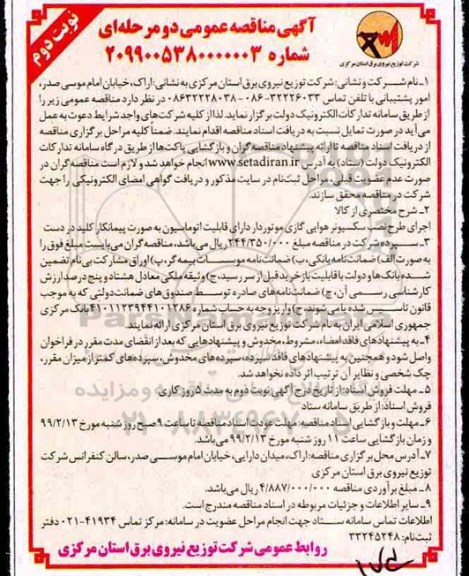 نوبت دوم
آگهی مناقصه عمومی دو مرحله‌ای
شماره ۲۰۹۹۰۰۵۳۸۰۰۰۰۰۰۳
شرکت توزیع نیروی برق استان مرکزی
۱ـ نام شـرکت و نشانی: شرکت توزیع نیروی برق استان مرکزی به نشانی: اراک، خیابان امام موسی صدر،
امور پشتیبانی با تلفن تماس ۳۲۲۲۶۰۳۳-۰۸۶ - ۰۸۶۳۲۲۲۸۰۳۸ در نظر دارد مناقصه عمومی زیر را
از طریق سامانه تدارکات الکترونیک دولت برگزار نماید. لذا از کلیه شرکت‌های واجد شرایط دعوت به عمل
می‌آید در صورت تمایل نسبت به دریافت اسناد مناقصه اقدام نمایند. ضمنا کلیه مراحل برگزاری مناقصه
از دریافت اسناد مناقصه تا ارائه پیشنهاد مناقصه‌گران و بازگشایی پاکت‌ها از طریق درگاه سامانه تدارکات
الکترونیک دولت (ستاد) به آدرس www.setadiran.ir انجام خواهد شد و لازم است مناقصه‌گران در
صورت عدم عضویت قبلی، مراحل ثبت‌نام در سایت مذکور و دریافت گواهی امضای الکترونیکی را جهت
شرکت در مناقصه محقق سازند.
۲ـ شرح مختصری از کالا
اجرای طرح نصب سکسیونر هوایی گازی موتوردار دارای قابلیت اتوماسیون به صورت پیمانکار کلید در دست
۳ـ سپرده شرکت در مناقصه مبلغ ۲۴۴/۳۵۰/۰۰۰ ریال می‌باشد، مناقصه‌گران می‌بایست مبلغ فوق را
به صورت الف) ضمانت‌نامه بانکی، ب) ضمانت‌نامه موسسات بیمه‌گر، پ) اوراق مشارکت بی‌نام تضمین
شده بانک‌ها و دولت با قابلیت بازخرید قبل از سررسید، ج) وثیقه ملکی معادل هشتاد و پنج درصد ارزش
کارشناسی رسمی آن، چ) ضمانت‌نامه‌های صادره توسط صندوق‌های ضمانت دولتی که به موجب
قانون تاسیس شده یا می‌شوند، ح) واریز وجه به حساب شماره ۴۱۰۱۱۲۳۹۴۴۱۰۱۲۸۶ بانک مرکزی
جمهوری اسلامی ایران به نام شرکت توزیع نیروی برق استان مرکزی ارائه نمایند.
۴ـ به پیشنهادهای فاقد امضاء، مشروط، مخدوش و پیشنهادهایی که بعد از انقضای مدت مقرر در فراخوان
واصل شود و همچنین به پیشنهادهای فاقد سپرده، سپرده‌های مخدوش، سپرده‌های کمتر از میزان مقرر،
چک شخصی و نظایر آن ترتیب اثر داده نخواهد شد.
۵ـ مهلت فروش اسناد: از تاریخ درج آگهی نوبت دوم به مدت ۵ روز کاری
فروش اسناد: از طریق سامانه ستاد
۶ـ مهلت و بازگشایی اسناد مناقصه: مهلت عودت اسناد مناقصه تا ساعت ۹ صبح روز شنبه مورخ ۹۹/۲/۱۳
و زمان بازگشایی ساعت ۱۱ روز شنبه مورخ ۹۹/۲/۱۳ می‌باشد.
۷ـ آدرس محل برگزاری مناقصه: اراک، میدان دارایی، خیابان امام موسی صدر، سالن کنفرانس شرکت
توزیع نیروی برق استان مرکزی
۸ـ مبلغ برآوردی مناقصه ۴/۸۸۷/۰۰۰/۰۰۰ ریال می‌باشد.
۹ـ سایر اطلاعات و جزئیات مربوطه در اسناد مناقصه مندرج است.
اطلاعات تماس سامانه ستاد جهت انجام مراحل عضویت در سامانه: مرکز تماس ۴۱۹۳۴-۰۲۱ دفتر
ثبت‌نام: ۳۳۲۴۵۲۴۸
روابط عمومی شرکت توزیع نیروی برق استان مرکزی